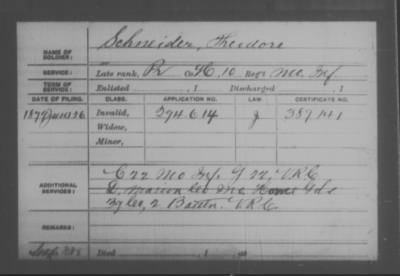 NAME OF SOLDIER: Schneider, Theodore
SERVICE: Late rank, P Co. H, 10 Reg't Mo Inf
TERM OF SERVICE: Enlisted , 1 Discharged , 1
DATE OF FILING. CLASS. APPLICATION NO. LAW. CERTIFICATE NO.
Invalid, 294.614 J 387.141
Widow,
Minor,
C 22 Mo Inf. G 22, V.R.C.
ADDITIONAL SERVICES: D. Marion Co Mo Home Gds
Co, 2 Battn. V.R.C.
REMARKS:
Died , 1 , at